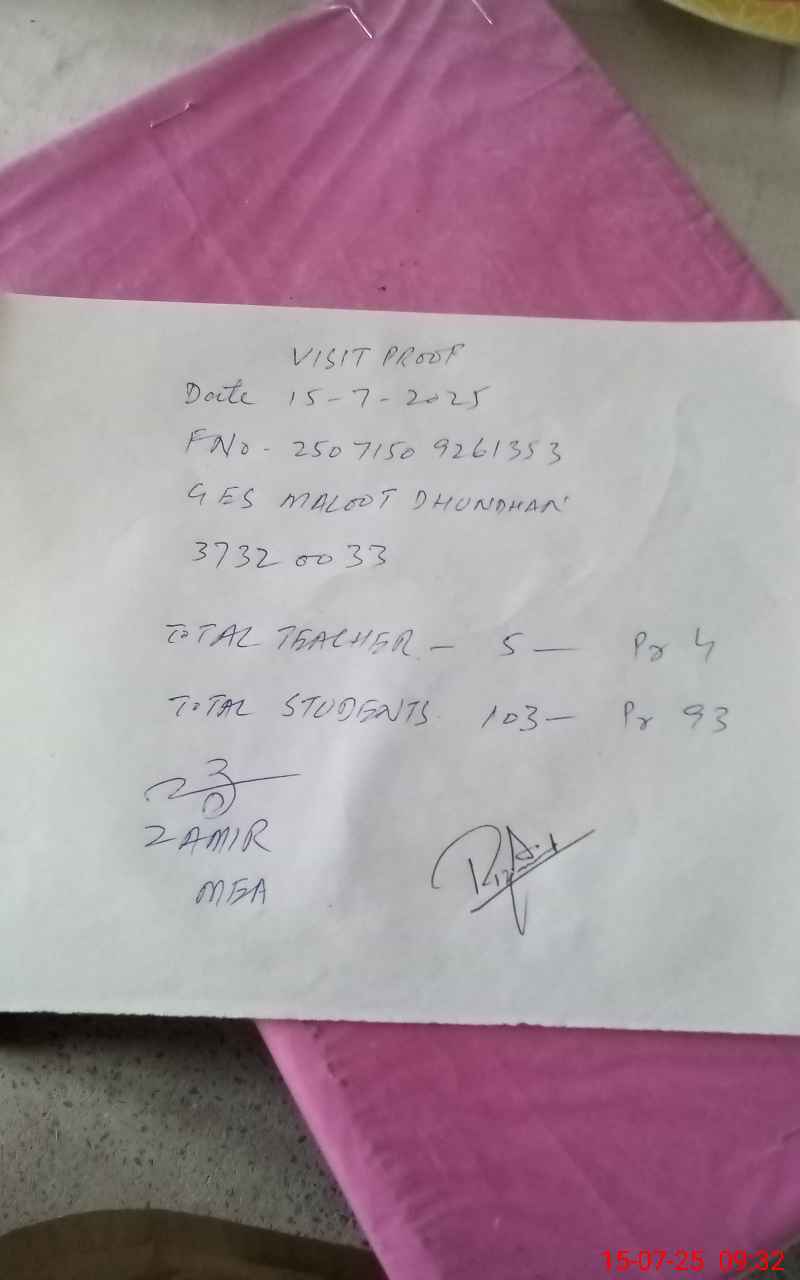 VISIT PROOF
Date 15-7-2025
FNo- 2507150 9261353
GES MALOOT DHUNDHAN
3732 0033
TOTAL TEACHER - 5 - Pr 4
TOTAL STUDENTS. 103- Pr 93
ZAMIR
MEA
15-07-25 09:32